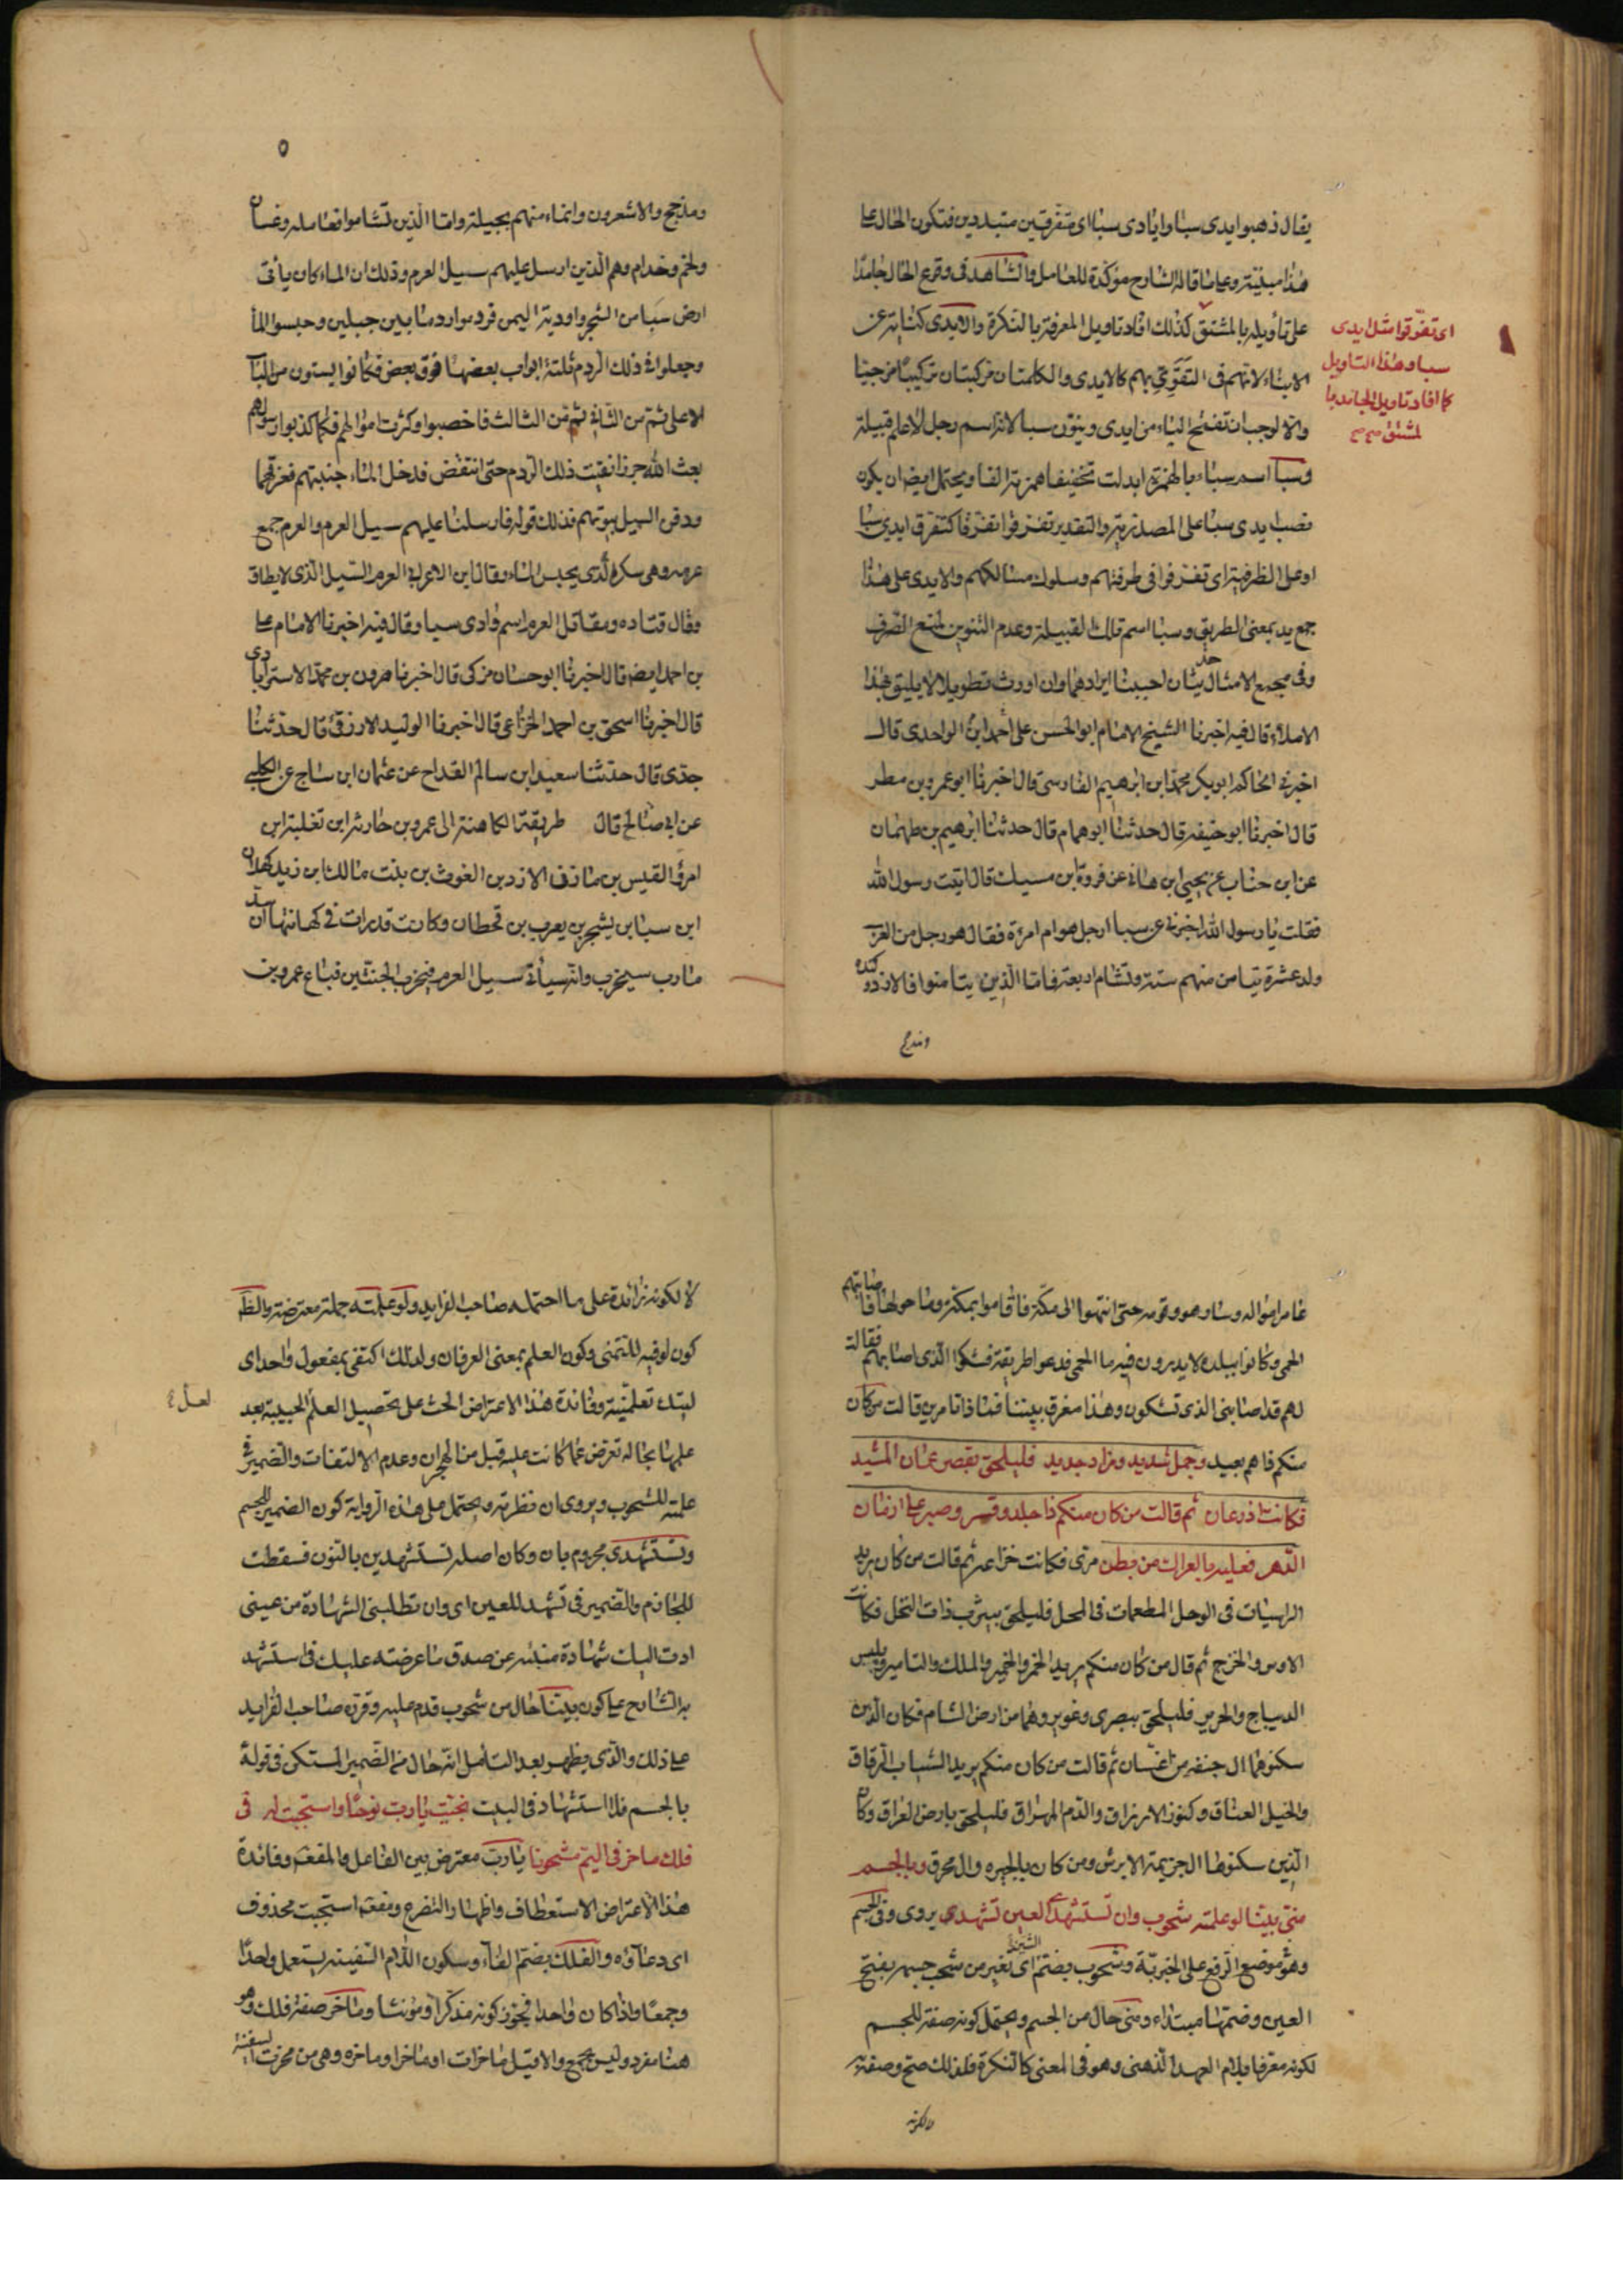 يقال ذهبوا ايدى سبا وايادى سبا اى متفرقين متبددين فتكون الحال على
هذا مبنيّة وعلى ما قاله الشارح مؤكّدة للعامل والشاهد فى وقوع الحال جامدًا
على تأويله بالمشتق كذلك افاد تاويل المعرفة بالنكرة والايدى كناية عن
الابناء لانهم فى التقوّى بهم كالايدى والكلمتان مركبتان تركيب
والا لوجب ان تفتح الياء من ايدى وينوّن سبا لانه اسم رجل لا علم قبيلة
وسبا اسمه سباء بالهمزة ابدلت تخفيفا همزته الفا ويحتمل ايضا ان يكون
نصب ايدى سبا على المصدرية والتقدير تفرّقوا تفرّقا كتفرّق ايدى سبا
او على الظرفية اى تفرقوا فى طرقهم وسلوك مسالكهم والايدى على هذا
جمع يد بمعنى الطريق وسبا اسم تلك القبيلة وعدم التنوين لمنع الصّرف
وفى مجمع الامثال حديثان احببنا ايرادهما وان اورث تطويلا لا يليق بهذا
الاملاء قال فيه اخبرنا الشيخ الامام ابو الحسن على احمد ابن الواحدى قال
اخبرنى الحاكم ابو بكر محمد ابن ابرهيم الفارسى قال اخبرنا ابو عمرو بن مطر
قال اخبرنا ابو خليفه قال حدثنا ابو همام قال حدثنا ابرهيم بن طهمان
عن ابى جناب عن يحيى ابن هانى عن فروة ابن مسيك قال اتيت رسول الله
فقلت يا رسول الله اخبرنى عن سبا ارجل هو ام امرءة فقال هو رجل من العرب
ولد عشرة تيامن منهم ستة وتشام اربعة فاما الذين تيامنوا فالازد وكنده
ومذحج
اى تفرّقوا مثل ايدى
سبا وهذا التاويل
كما افاد تاويل الجامد با
لمشتق
٥
ومذحج والاشعرون وانماء منهم بجيلة واما الذين تشاموا فعامله وغسان
ولخم وجذام وهم الذين ارسل عليهم سيل العرم وذلك ان الماء كان يأتى
ارض سبا من الشجر واودية اليمن فردموا ردما بين جبلين وحبسوا الماء
وجعلوا فى ذلك الردم ثلثة ابواب بعضها فوق بعض فكانوا يسقون من الباب
الاعلى ثم من الثانى ثم من الثالث فاخصبوا وكثرت اموالهم فلما كذبوا رسولهم
بعث الله جرذا نقبت ذلك الردم حتى انتقض فدخل الماء جنتيهم فغرقهما
ودفن السيل بيوتهم فذلك قوله فارسلنا عليهم سيل العرم والعرم جمع
عرمه وهى سكره الذى يحبس الماء وقال ابن الاعرابى العرم السّيل الذى لا يطاق
وقال قتاده ومقاتل العرم اسم وادى سبا وقال فيه اخبرنا الامام على
بن احمد ايضا قال اخبرنا ابو حسان مزكى قال اخبرنا هرون بن محمد الاسترابادى
قال اخبرنا اسحق بن احمد الخزاعى قال اخبرنا الوليد الازرقى قال حدثنا
جدى قال حدثنا سعيد ابن سالم القداح عن عثمان ابن ساج عن الكلبى
عن ابى صالح قال طريفة الكاهنة الى عمرو بن حارثه ابن ثعلبة ابن
امرؤ القيس بن مازن الازد بن الغوث بن بنت مالك ابن زيد كهلان
ابن سبا بن يشجب بن يعرب بن قحطان وكانت قد رات فى كهانتها ان سد
مارب سيخرب وانه سيأتى سيل العرم فيخرب الجنتين فباع عمرو بن
عامر امواله وسار هو وقومه حتى انتهوا الى مكّة فاقاموا بمكة وما حولها فاصابتهم
الحمى وكانوا ببلده لا يدرون فيه ما الحمى فدعوا طريفة فشكوا الذى اصابهم فقالت
لهم قد اصابنى الذى تشكون وهذا مفرق بيننا فماذا تامرين قالت من كان
منكم ذا هم بعيد وجمل شديد ومزاد جديد فليلحق بقصر عمان المشيد
فكانت ازد عمان ثم قالت من كان منكم ذا جلد وقسر وصبر على ازمان
الدّهر فعليه بالعراك من بطن مرّى فكانت خزاعه ثم قالت من كان يريد
الراسيات فى الوحل المطعمات فى المحل فليلحق بيثرب ذات النخل فكانت
الاوس والخزرج ثم قال من كان منكم يريد الخمر والخمير والملك والتامير ويلبس
الديباج والحرير فليلحق ببصرى وغوير وهما من ارض الشام فكان الذين
سكنوهما ال جفنه من غسّان ثم قالت من كان منكم يريد الثياب الرقاق
والخيل العتاق وكنوز الارزاق والدّم المهراق فليلحق بارض العراق وكان
الذين سكنوها ال جزيمة الابرش ومن كان بالحيره وال محرق وبالجسم
منّى بيّنا لو علمته شحوب وان تستشهدى العين تشهدى يروى وفى الجسم
وهو موضع الرفع على الخبريّة وشحوب بضمّ الشين اى تغير من شحب جسمه بفتح
العين وضمّها مبتداء ومنى حال من الجسم ويحتمل كونه صفة للجسم
لكونه معرفا بلام العهد الذهنى وهو فى المعنى كالنكرة فلذلك صحّ وصفته
لا لكونه
لا لكونه زائدة على ما احتمله صاحب الفرايد ولو علمته جملة معترضة والظ
كون لو فيه للتمنى وكون العلم بمعنى العرفان ولذلك اكتفى بمفعول واحد اى
ليتك تعلّمنيه وفائدة هذا الاعتراض الحث على تحصيل العلم للحبيبة بعد
علمها بحاله تعرض عما كانت عليه قبل من الهجران وعدم الالتفات والضمير فى
علمته للشحوب ويروى ان نظرته ويحتمل على هذه الرواية كون الضمير للجسم
وتستشهدى مجزوم بان وكان اصله تستشهدين بالنون فسقطت
للجازم والضمير فى تشهد للعين اى وان تطلبنى الشهادة من عينى
ادت اليك شهادة منبئه عن صدق ما عرضته عليك فاستشهد
به الشارح على كون بيّنا حال من شحوب قدم عليه وقرّره صاحب الفرايد
على ذلك والذى يظهر بعد التأمل انّه حال من الضّمير المستكن فى قوله
بالجسم فلا استشهاد فى البيت نجّيت يا ربّ نوحًا واستجبت له فى
فلك ماخر فى اليمّ مشحونا يا ربّ معترض بين الفاعل والمفعو وفائدة
هذا الاعتراض الاستعطاف واظهار التضرع ومفعو استجبت محذوف
اى دعاؤه والفلك بضمّ الفاء وسكون اللام السّفينه يستعمل واحدًا
وجمعًا واذا كان واحدا فيجوز كونه مذكرا ومؤنثا وماخر صفة فلك وهو
هنا مفرد وليس بجمع والا قيل ماخرات او ماخرا وماخره وهى من مخرت السفينة
لعل